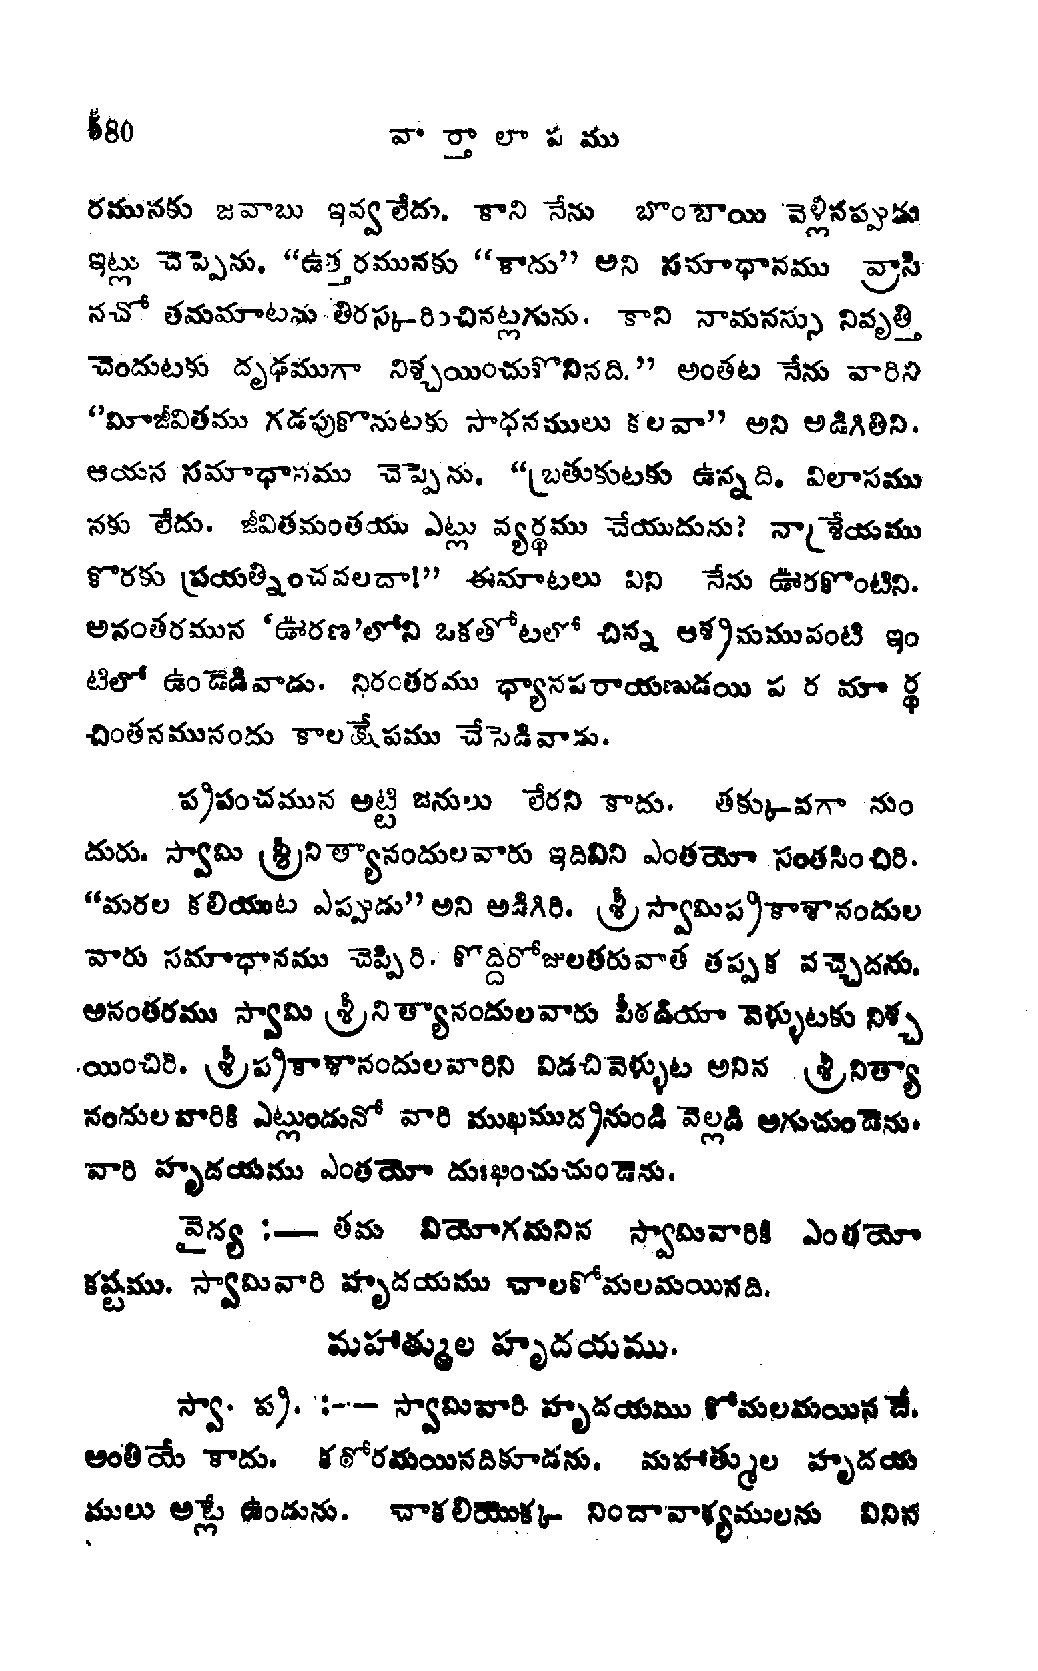 580 వార్తాలాపము
రమునకు జవాబు ఇవ్వలేదు. కాని నేను బొంబాయి వెళ్లినప్పుడు
ఇట్లు చెప్పెను. “ఉత్తరమునకు “కాదు” అని సమాధానము వ్రాసి
నచో తమమాటను తిరస్కరించినట్లగును. కాని నామనస్సు నివృత్తి
చెందుటకు దృఢముగా నిశ్చయించుకొనినది.” అంతట నేను వారిని
“మీజీవితము గడపుకొనుటకు సాధనములు కలవా” అని అడిగితిని.
ఆయన సమాధానము చెప్పెను. “బ్రతుకుటకు ఉన్నది. విలాసము
నకు లేదు. జీవితమంతయు ఎట్లు వ్యర్థము చేయుదును? నాశ్రేయము
కొరకు ప్రయత్నించవలదా!” ఈమాటలు విని నేను ఊరకొంటిని.
అనంతరమున ‘ఊరణ’లోని ఒకతోటలో చిన్న ఆశ్రమమువంటి ఇం
టిలో ఉండెడివాడు. నిరంతరము ధ్యానపరాయణుడయి పరమార్థ
చింతనమునందు కాలక్షేపము చేసెడివాడు.
ప్రపంచమున అట్టి జనులు లేరని కాదు. తక్కువగా నుం
దురు. స్వామి శ్రీనిత్యానందులవారు ఇదివిని ఎంతయో సంతసించిరి.
“మరల కలియుట ఎప్పుడు” అని అడిగిరి. శ్రీస్వామిప్రకాశానందుల
వారు సమాధానము చెప్పిరి. కొద్దిరోజులతరువాత తప్పక వచ్చెదను.
అనంతరము స్వామి శ్రీనిత్యానందులవారు పీఠడియా వెళ్ళుటకు నిశ్చ
యించిరి. శ్రీప్రకాశానందులవారిని విడచివెళ్ళుట అనిన శ్రీనిత్యా
నందులవారికి ఎట్లుండునో వారి ముఖముద్రనుండి వెల్లడి అగుచుండెను.
వారి హృదయము ఎంతయో దుఃఖించుచుండెను.
వైద్య :— తమ వియోగమనిన స్వామివారికి ఎంతయో
కష్టము. స్వామివారి హృదయము చాలకోమలమయినది.
మహాత్ముల హృదయము.
స్వా. ప్ర. :— స్వామివారి హృదయము కోమలమయినదే.
అంతియే కాదు. కఠోరమయినదికూడను. మహాత్ముల హృదయ
ములు అట్లే ఉండును. చాకలియొక్క నిందావాక్యములను వినిన